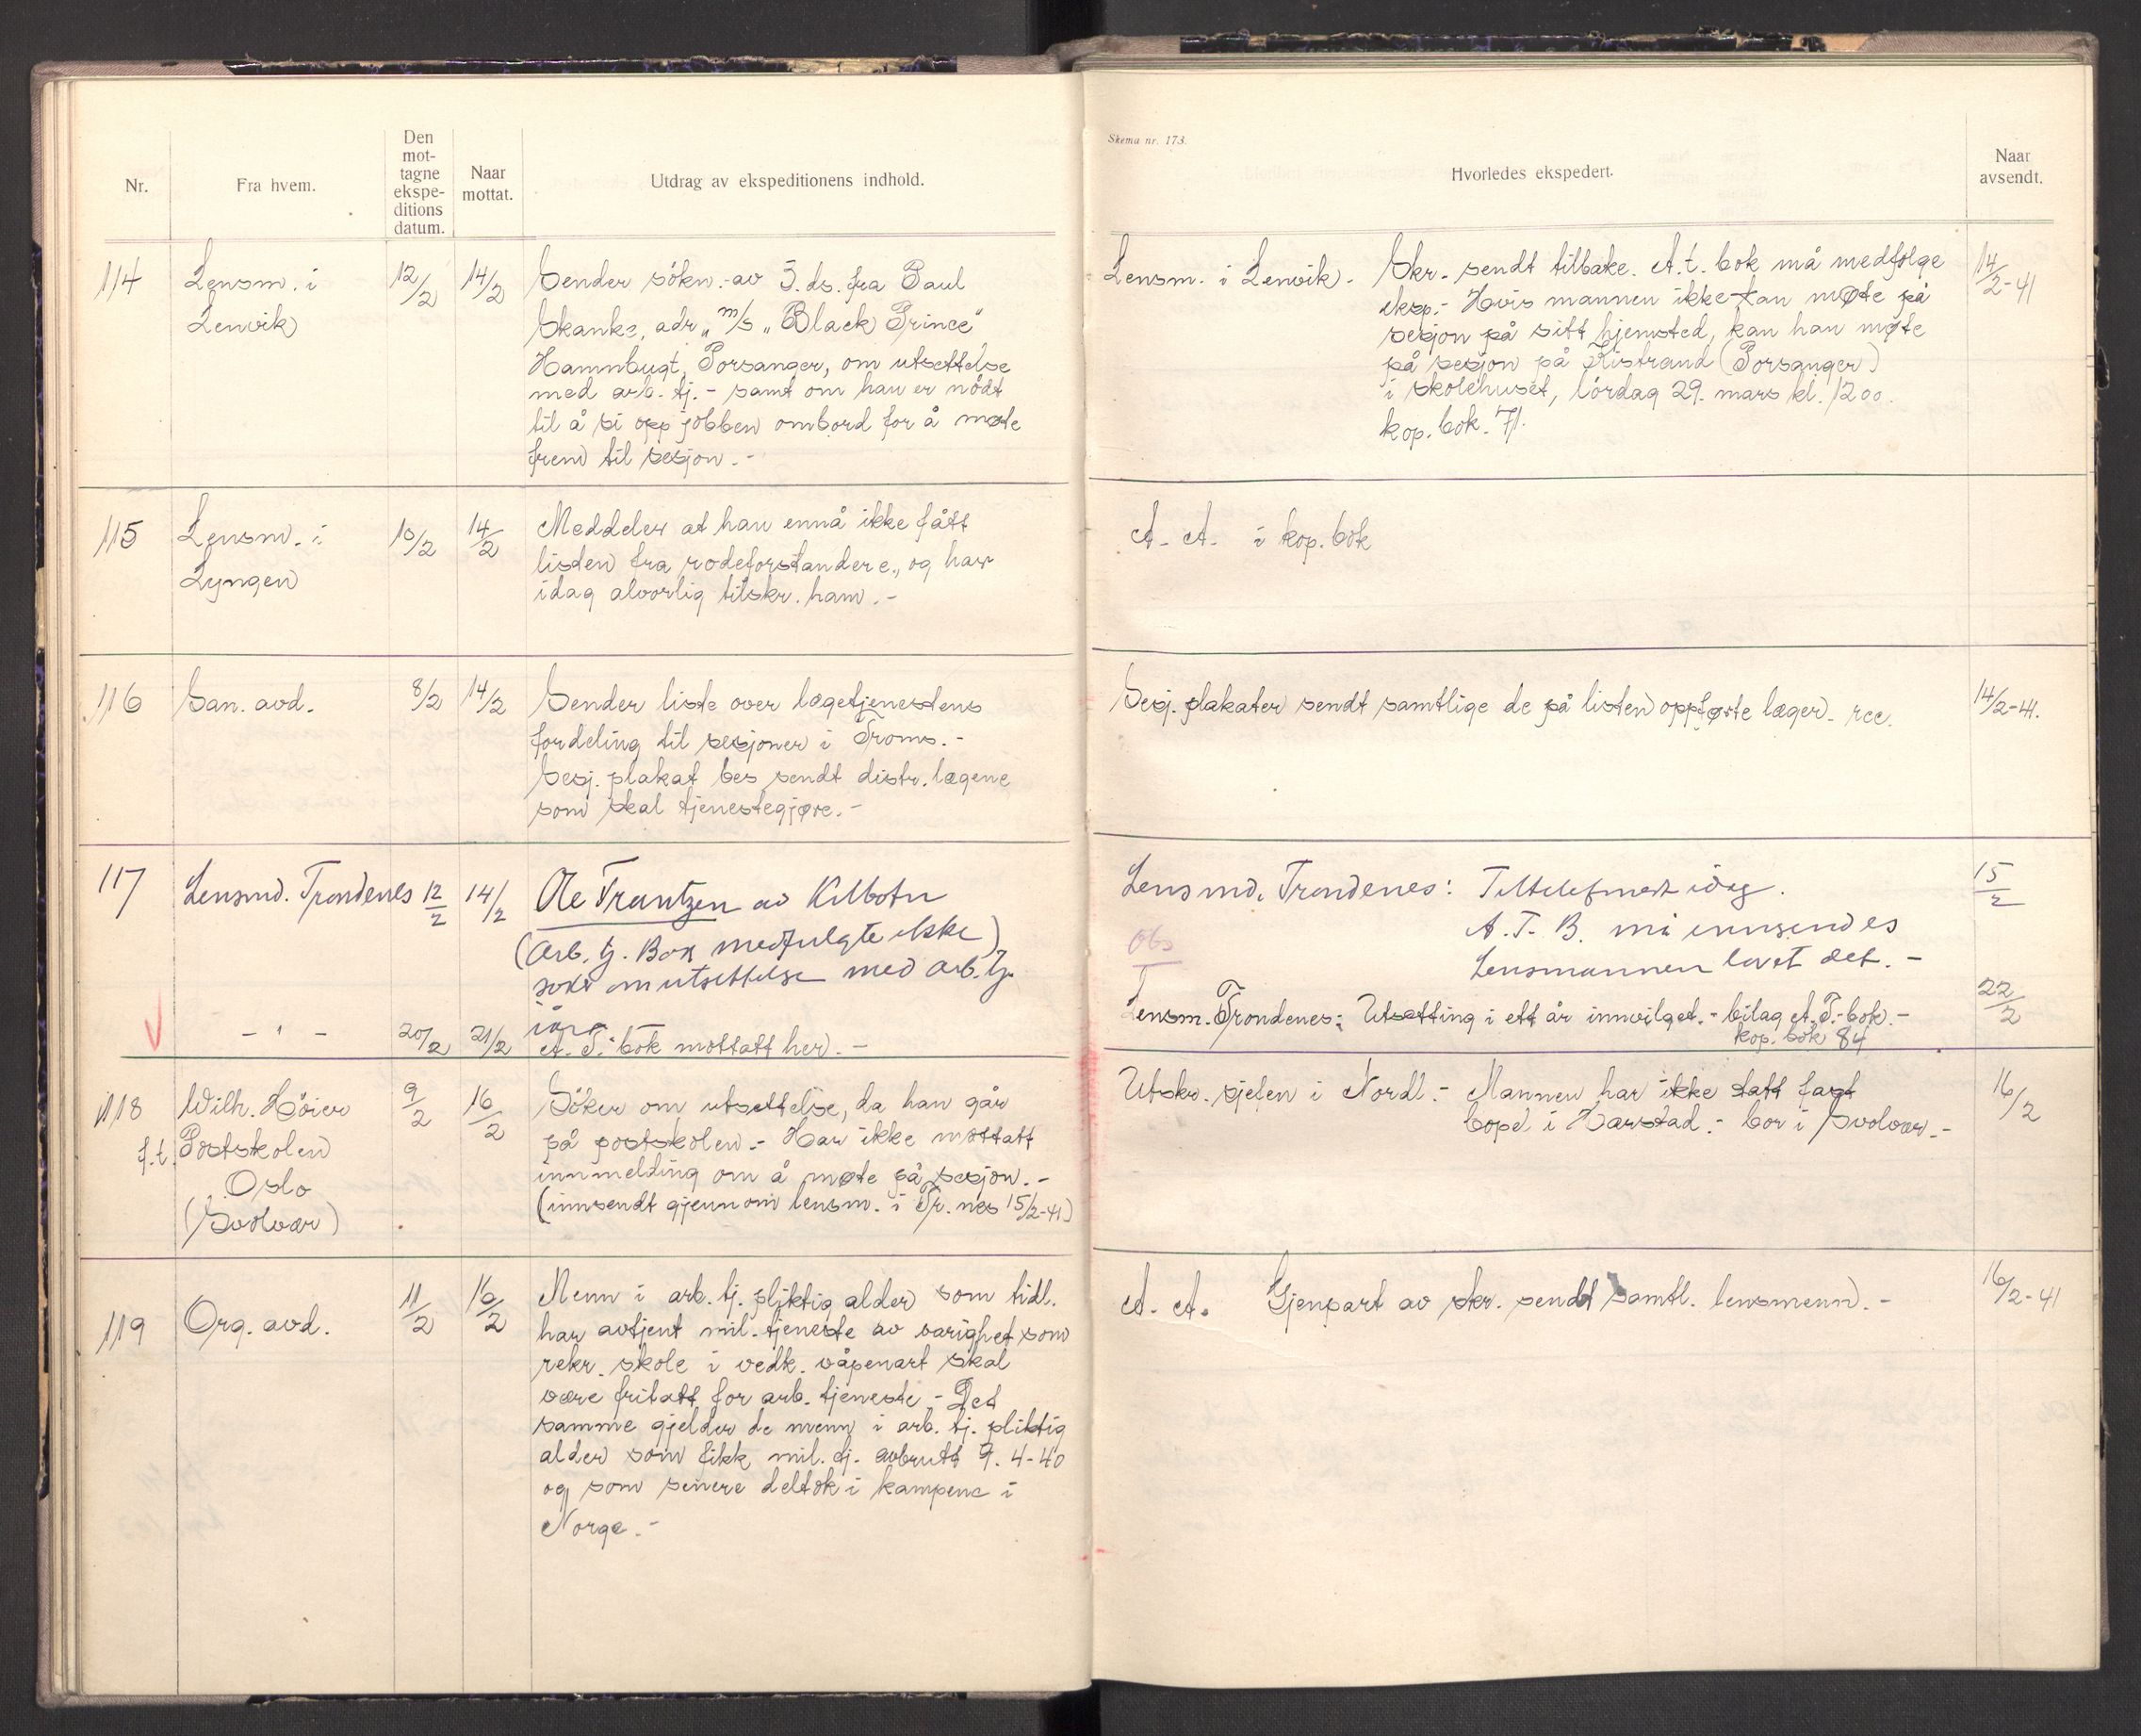 Nr.
Fra hvem.
Den
mot-
tagne
ekspe-
ditions
datum.
Naar
mottat.
Utdrag av ekspeditionens indhold.
114
Lensm. i
Lenvik
12/2
14/2
Sender sökn. av 3. ds. fra Paul
Skanke, adr. „m/s „Black Prince"
Hamnbugt, Porsanger, om utsettelse
med arb. tj. - samt om han er nödt
til å si opp jobben ombord for å møte
frem til sesjon. -
115
Lensm. i
Lyngen
10/2
14/2
Meddeler at han ennå ikke fått
listen fra rodeforstandere, og har
idag alvorlig tilskr. ham. -
116
San. avd.
8/2
14/2
Sender liste over lægetjenestens
fordeling til sesjoner i Troms. -
Sesj. plakat bes sendt distr. lægene
som skal tjenestegjøre. -
117
Lensmd. Trondenes
12/2
14/2
Ole Frantzen av Kilbotn
(Arb. tj. Bok medfulgte ikke)
søker om utsettelse med arb. tj.
i år
- " -
20/2
21/2
A. T. bok mottatt her. -
118
Wilh. Höier
f.t. Postskolen
Oslo
(Svolvær)
9/2
16/2
Söker om utsettelse, da han går
på postskolen. - Har ikke mottatt
innmelding om å møte på sesjon. -
(innsendt gjennom lensm. i Tr. nes 15/2-41)
119
Org. avd.
11/2
16/2
Menn i arb. tj. pliktig alder som tidl.
har avtjent mil. tjeneste av varighet som
rekr. skole i vedk. våpenart skal
være fritatt for arb. tjeneste - Det
samme gjelder de menn i arb. tj. pliktig
alder som fikk mil. tj. avbrutt 9. 4-40
og som senere deltok i kampene i
Norge. -
Skema nr. 173.
Hvorledes ekspedert.
Naar
avsendt.
Lensm. i Lenvik. - Skr. sendt tilbake. A.t. bok må medfølge
eksp. - Hvis mannen ikke kan møte på
sesjon på sitt hjemsted, kan han møte
på sesjon på Kistrand (Porsanger)
i skolehuset, lördag 29. mars kl. 1200.
kop. bok. 71.
14/2-41
A. A. i kop. bok
Sesj. plakater sendt samtlige de på listen oppførte læger. - rec.
14/2-41.
Lensmd. Trondenes: Tiltelefonert idag.
15/2
Obs
A. T. B. må innsendes
Lensmannen lovet det. -
Lensm. Trondenes: Utsetting i ett år innvilget. - bilag A. T. - bok. -
kop. bok 84
22/2
Utskr. sjefen i Nordl. - Mannen har ikke tatt fast
bopel i Harstad. - bor i Svolvær. -
16/2
A. A. Gjenpart av skr. sendt samtl. lensmenn. -
16/2-41